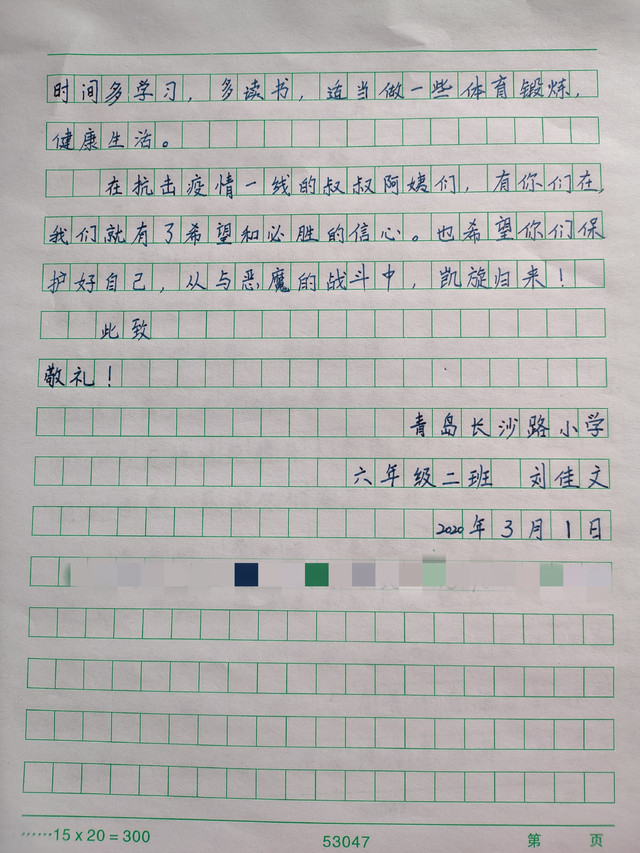 时间多学习，多读书，适当做一些体育锻炼，
健康生活。
在抗击疫情一线的叔叔阿姨们，有你们在，
我们就有了希望和必胜的信心。也希望你们保
护好自己，从与恶魔的战斗中，凯旋归来！
此致
敬礼！
青岛长沙路小学
六年级二班 刘佳文
2020年3月1日
……15x20=300 53047 第 页